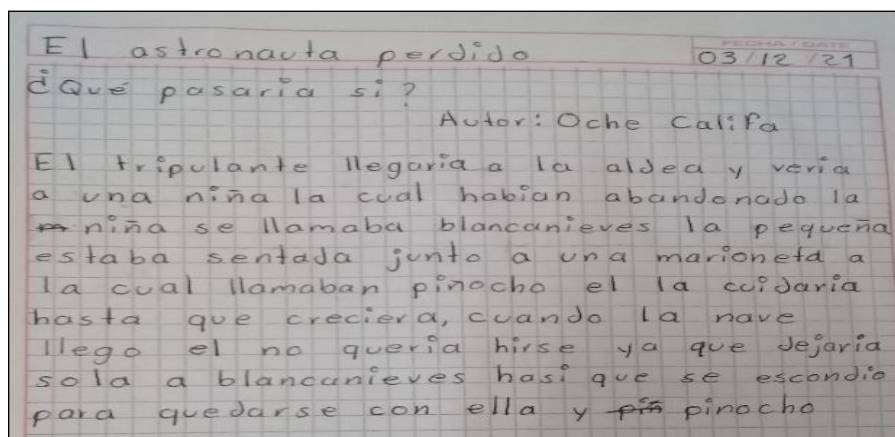 El astronauta perdido
FECHA / DATE
03/12/21
¿Qué pasaria si?
Autor: Oche Califa
El tripulante llegaria a la aldea y veria
a una niña la cual habian abandonado la
niña se llamaba blancanieves la pequeña
estaba sentada junto a una marioneta a
la cual llamaban pinocho el la cuidaria
hasta que creciera, cuando la nave
llego el no queria hirse ya que dejaria
sola a blancanieves hasi que se escondio
para quedarse con ella y pinocho